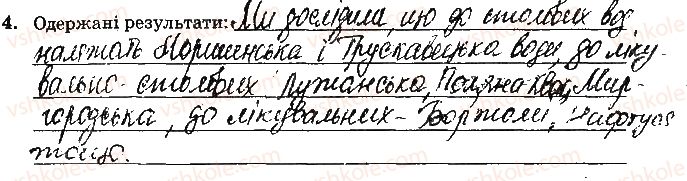 4. Одержані результати: Ми дослідила, що до столових вод
належать Моршинська і Трускавецька води, до ліку-
вально-столових Лужанська, Поляна Кв, Мир-
городська, до лікувальних - Боржомі, Нафтуся
тощо.